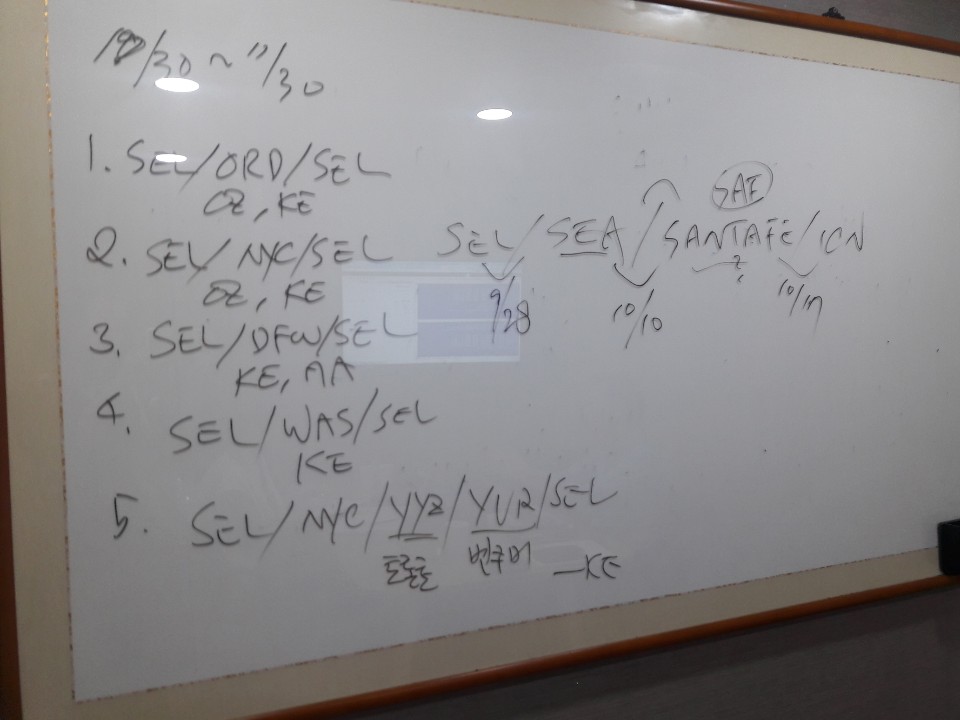 10/30 ~ 11/30
1. SEL/ORD/SEL
OZ, KE
2. SEL/NYC/SEL
OZ, KE
3. SEL/DFW/SEL
KE, AA
4. SEL/WAS/SEL
KE
5. SEL/NYC/YYZ/YVR/SEL
토론토 벤쿠버 —KE
SAF
SEL/SEA/SANTAFE/ICN
?
9/28 10/10 10/17